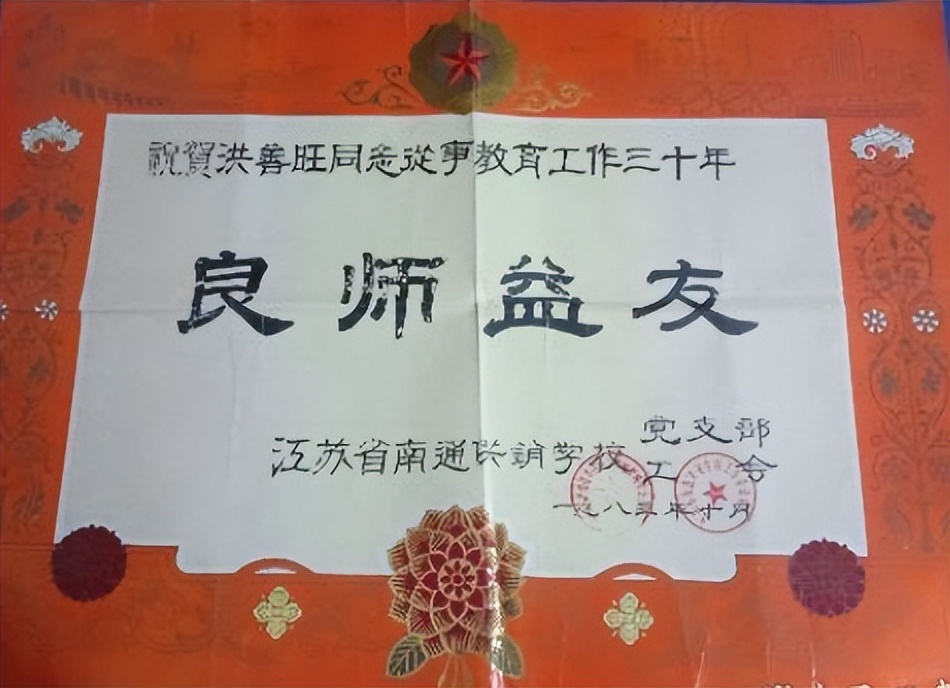 祝賀洪善旺同志從事教育工作三十年
良师益友
江苏省南通供销学校
党支部
工会
一九八三年十月